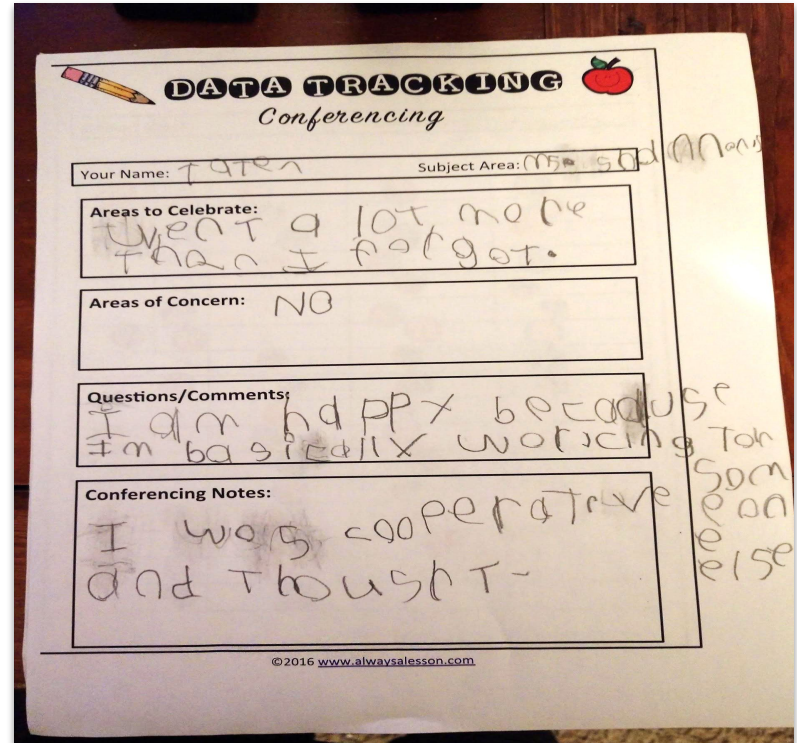 DATA TRACKING
Conferencing
Your Name: Taten Subject Area:
Areas to Celebrate:
went a lot more
than I forgot.
Areas of Concern: NO
Questions/Comments:
I am happy becaduse
Im basically working for
som
eon
e
else
Conferencing Notes:
I was cooperative
and thought-
©2016 www.alwaysalesson.com